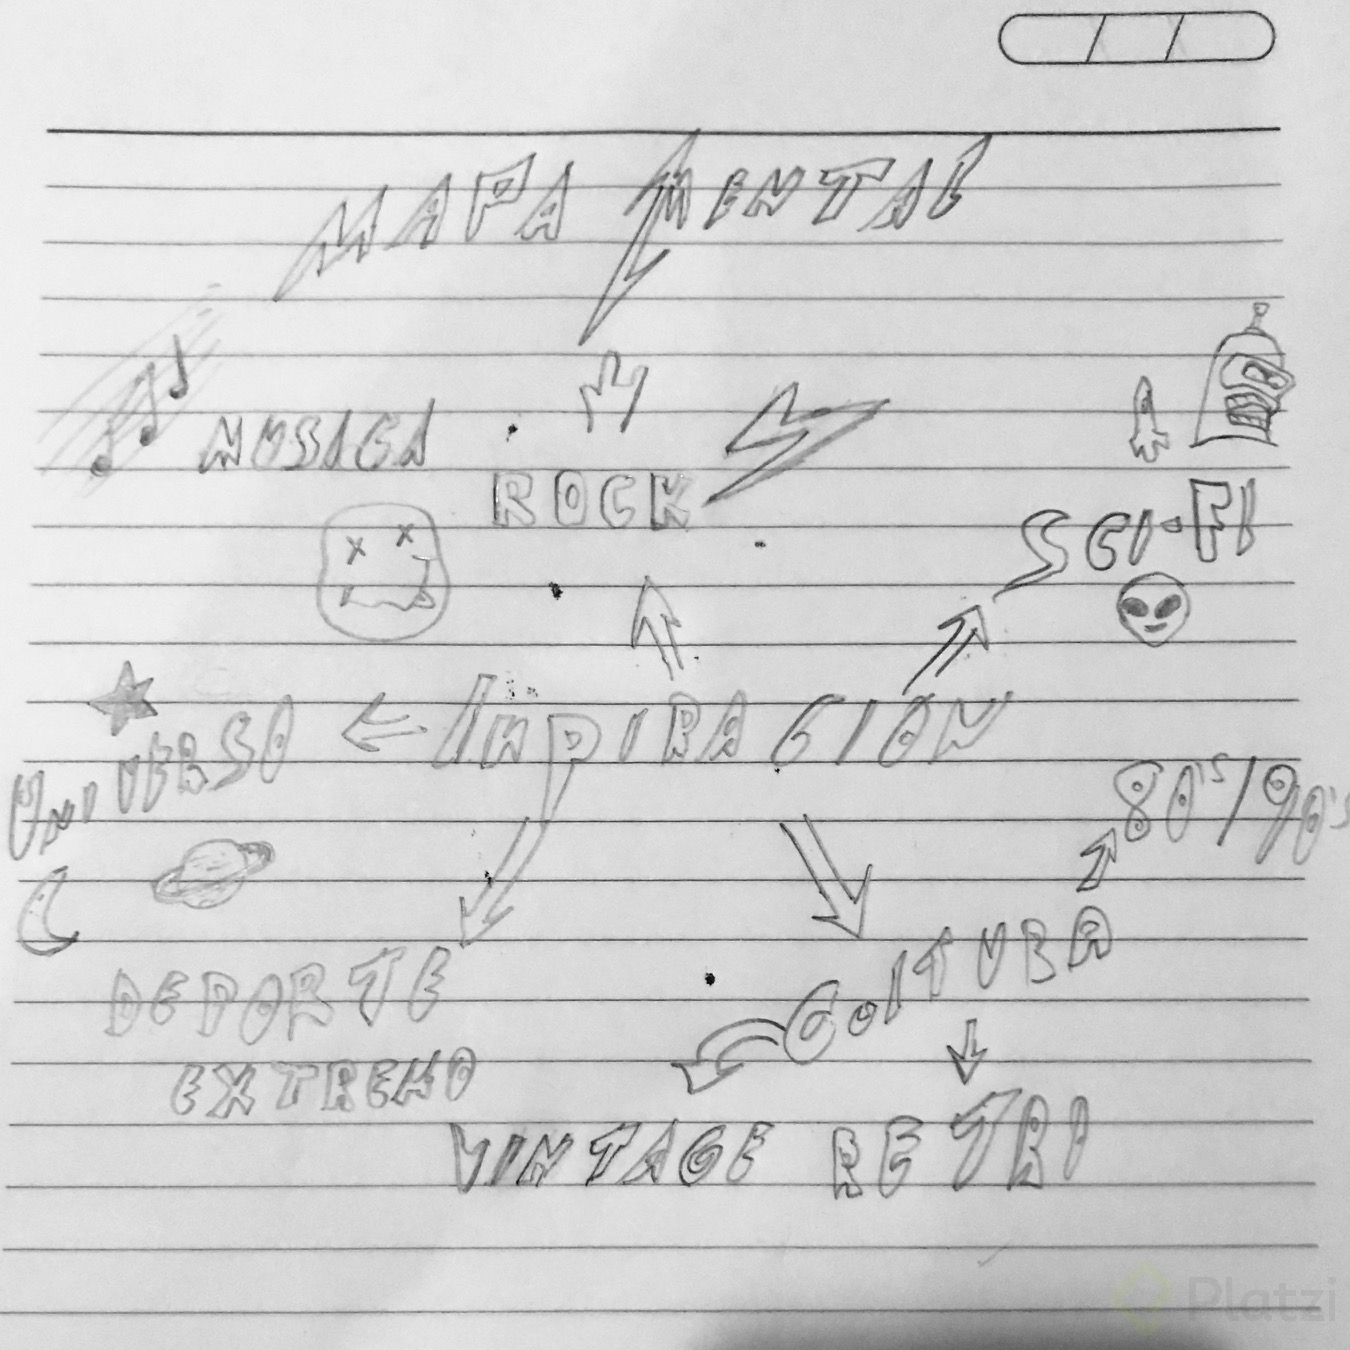 MAPA MENTAL
MUSICA
ROCK
SCI-FI
INPIRACION
UNIVERSO
80's/90's
DEPORTE
EXTREMO
CULTURA
VINTAGE RETRI
Platzi